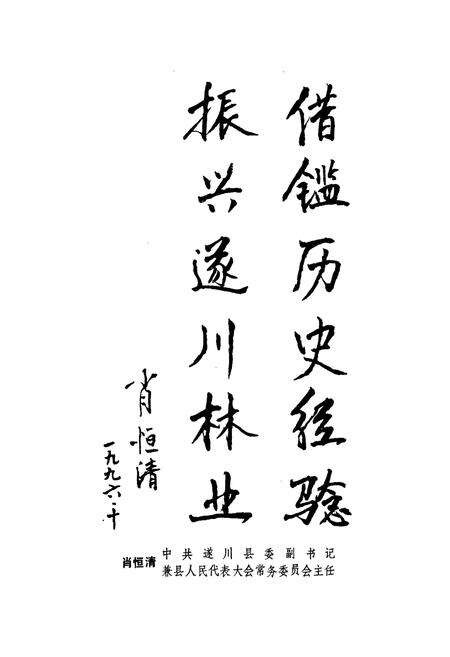 借鉴历史经验
振兴遂川林业
肖恒清
一九九六.十
肖恒清
中共遂川县委副书记
兼县人民代表大会常务委员会主任